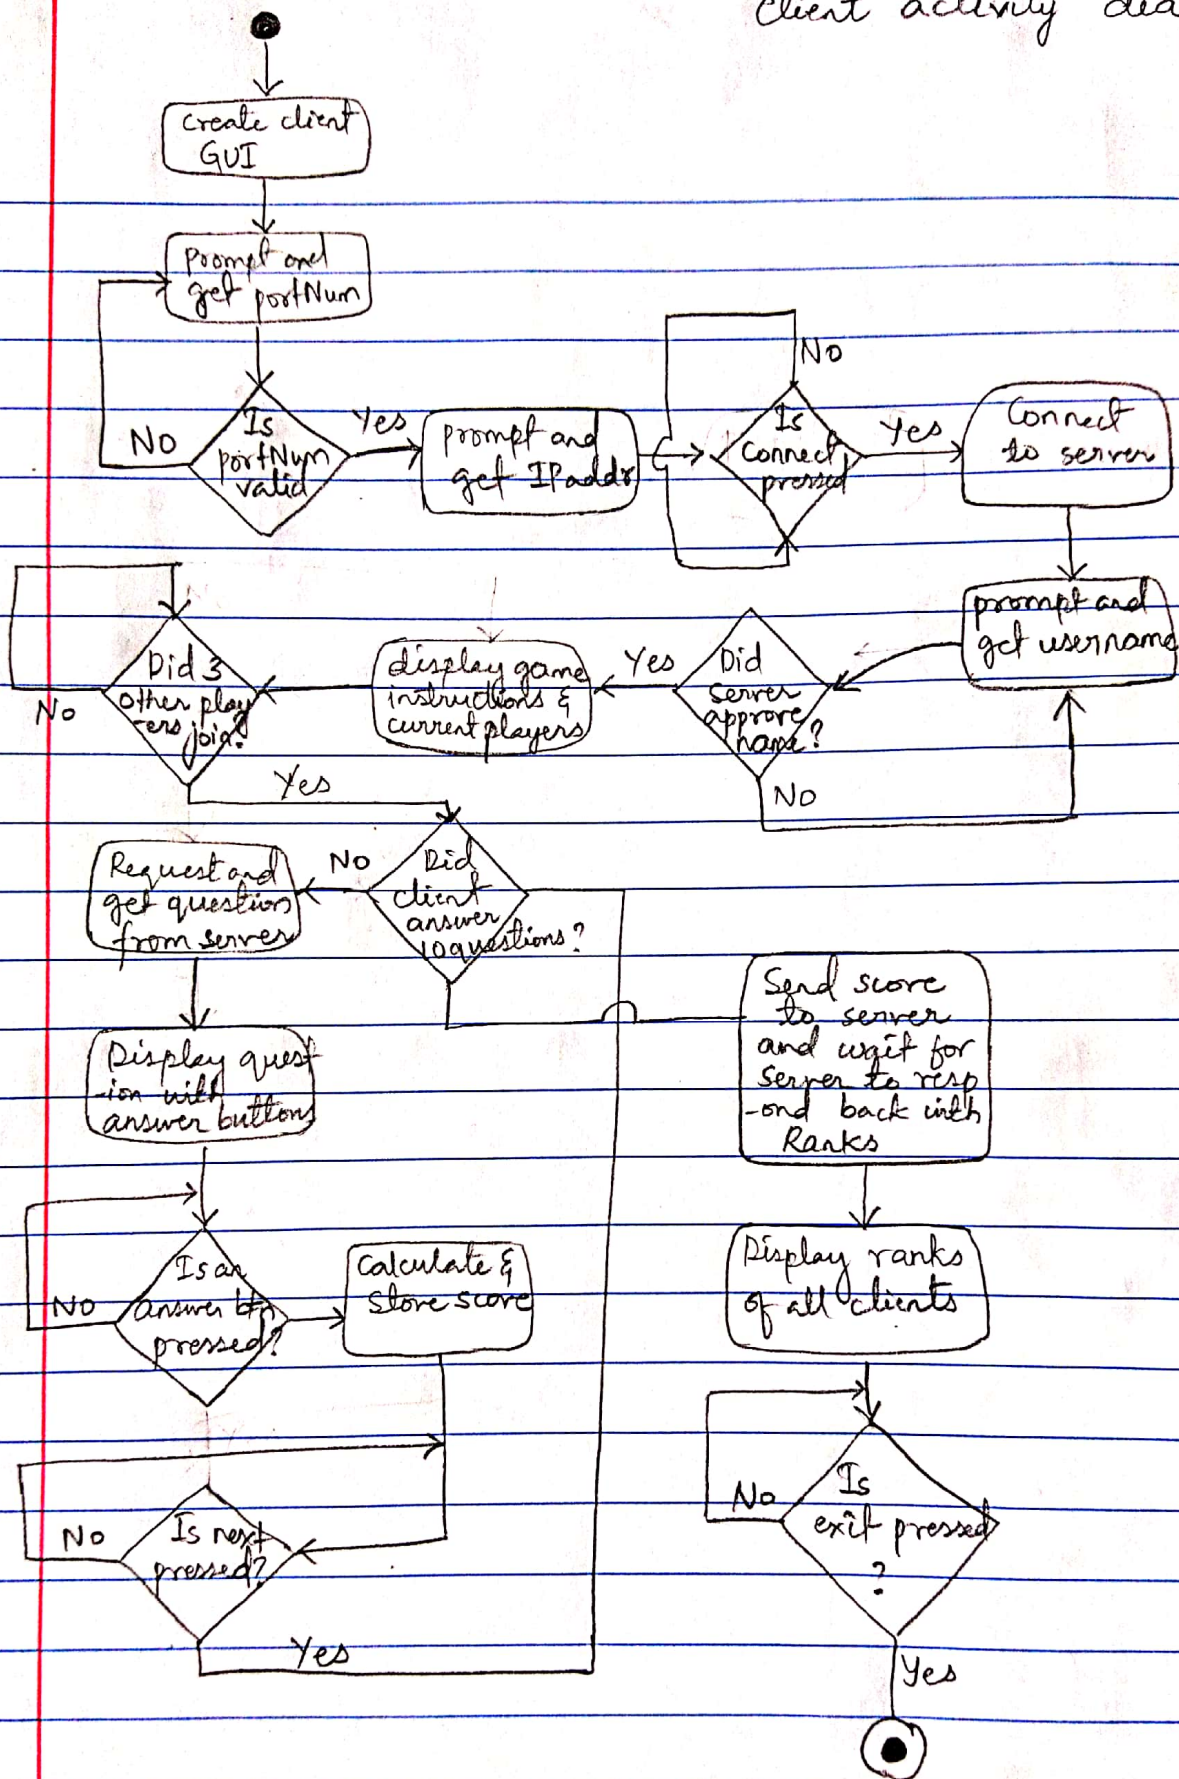 Client activity dia
Create client
GUI
Prompt and
get portNum
Is
portNum
valid
No
Yes
prompt and
get IPaddr
Is
Connect
pressed
No
Yes
Connect
to server
prompt and
get username
Did
server
approve
name?
No
Yes
display game
instructions &
current players
Did 3
other play
-ers join?
No
Yes
Did
client
answer
10 questions?
No
Request and
get question
from server
Display quest
-ion with
answer buttons
Is an
answer btn
pressed?
No
Calculate &
Store score
Is next
pressed?
No
Yes
Send score
to server
and wait for
server to resp
-ond back with
Ranks
Display ranks
of all clients
Is
exit pressed
?
No
Yes